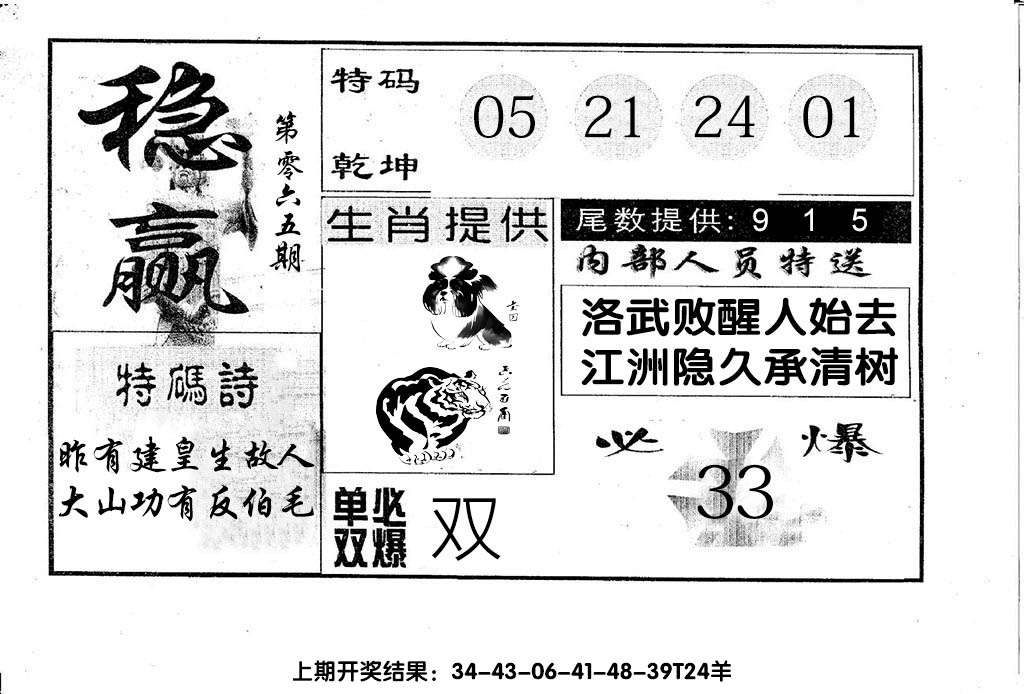 稳赢
第零六五期
特码诗
昨有建皇生故人
大山功有反伯毛
特码
乾坤
05 21 24 01
生肖提供
尾数提供: 9 1 5
内部人员特送
洛武败醒人始去
江洲隐久承清树
必爆
33
单双
必爆
双
上期开奖结果：34-43-06-41-48-39T24羊